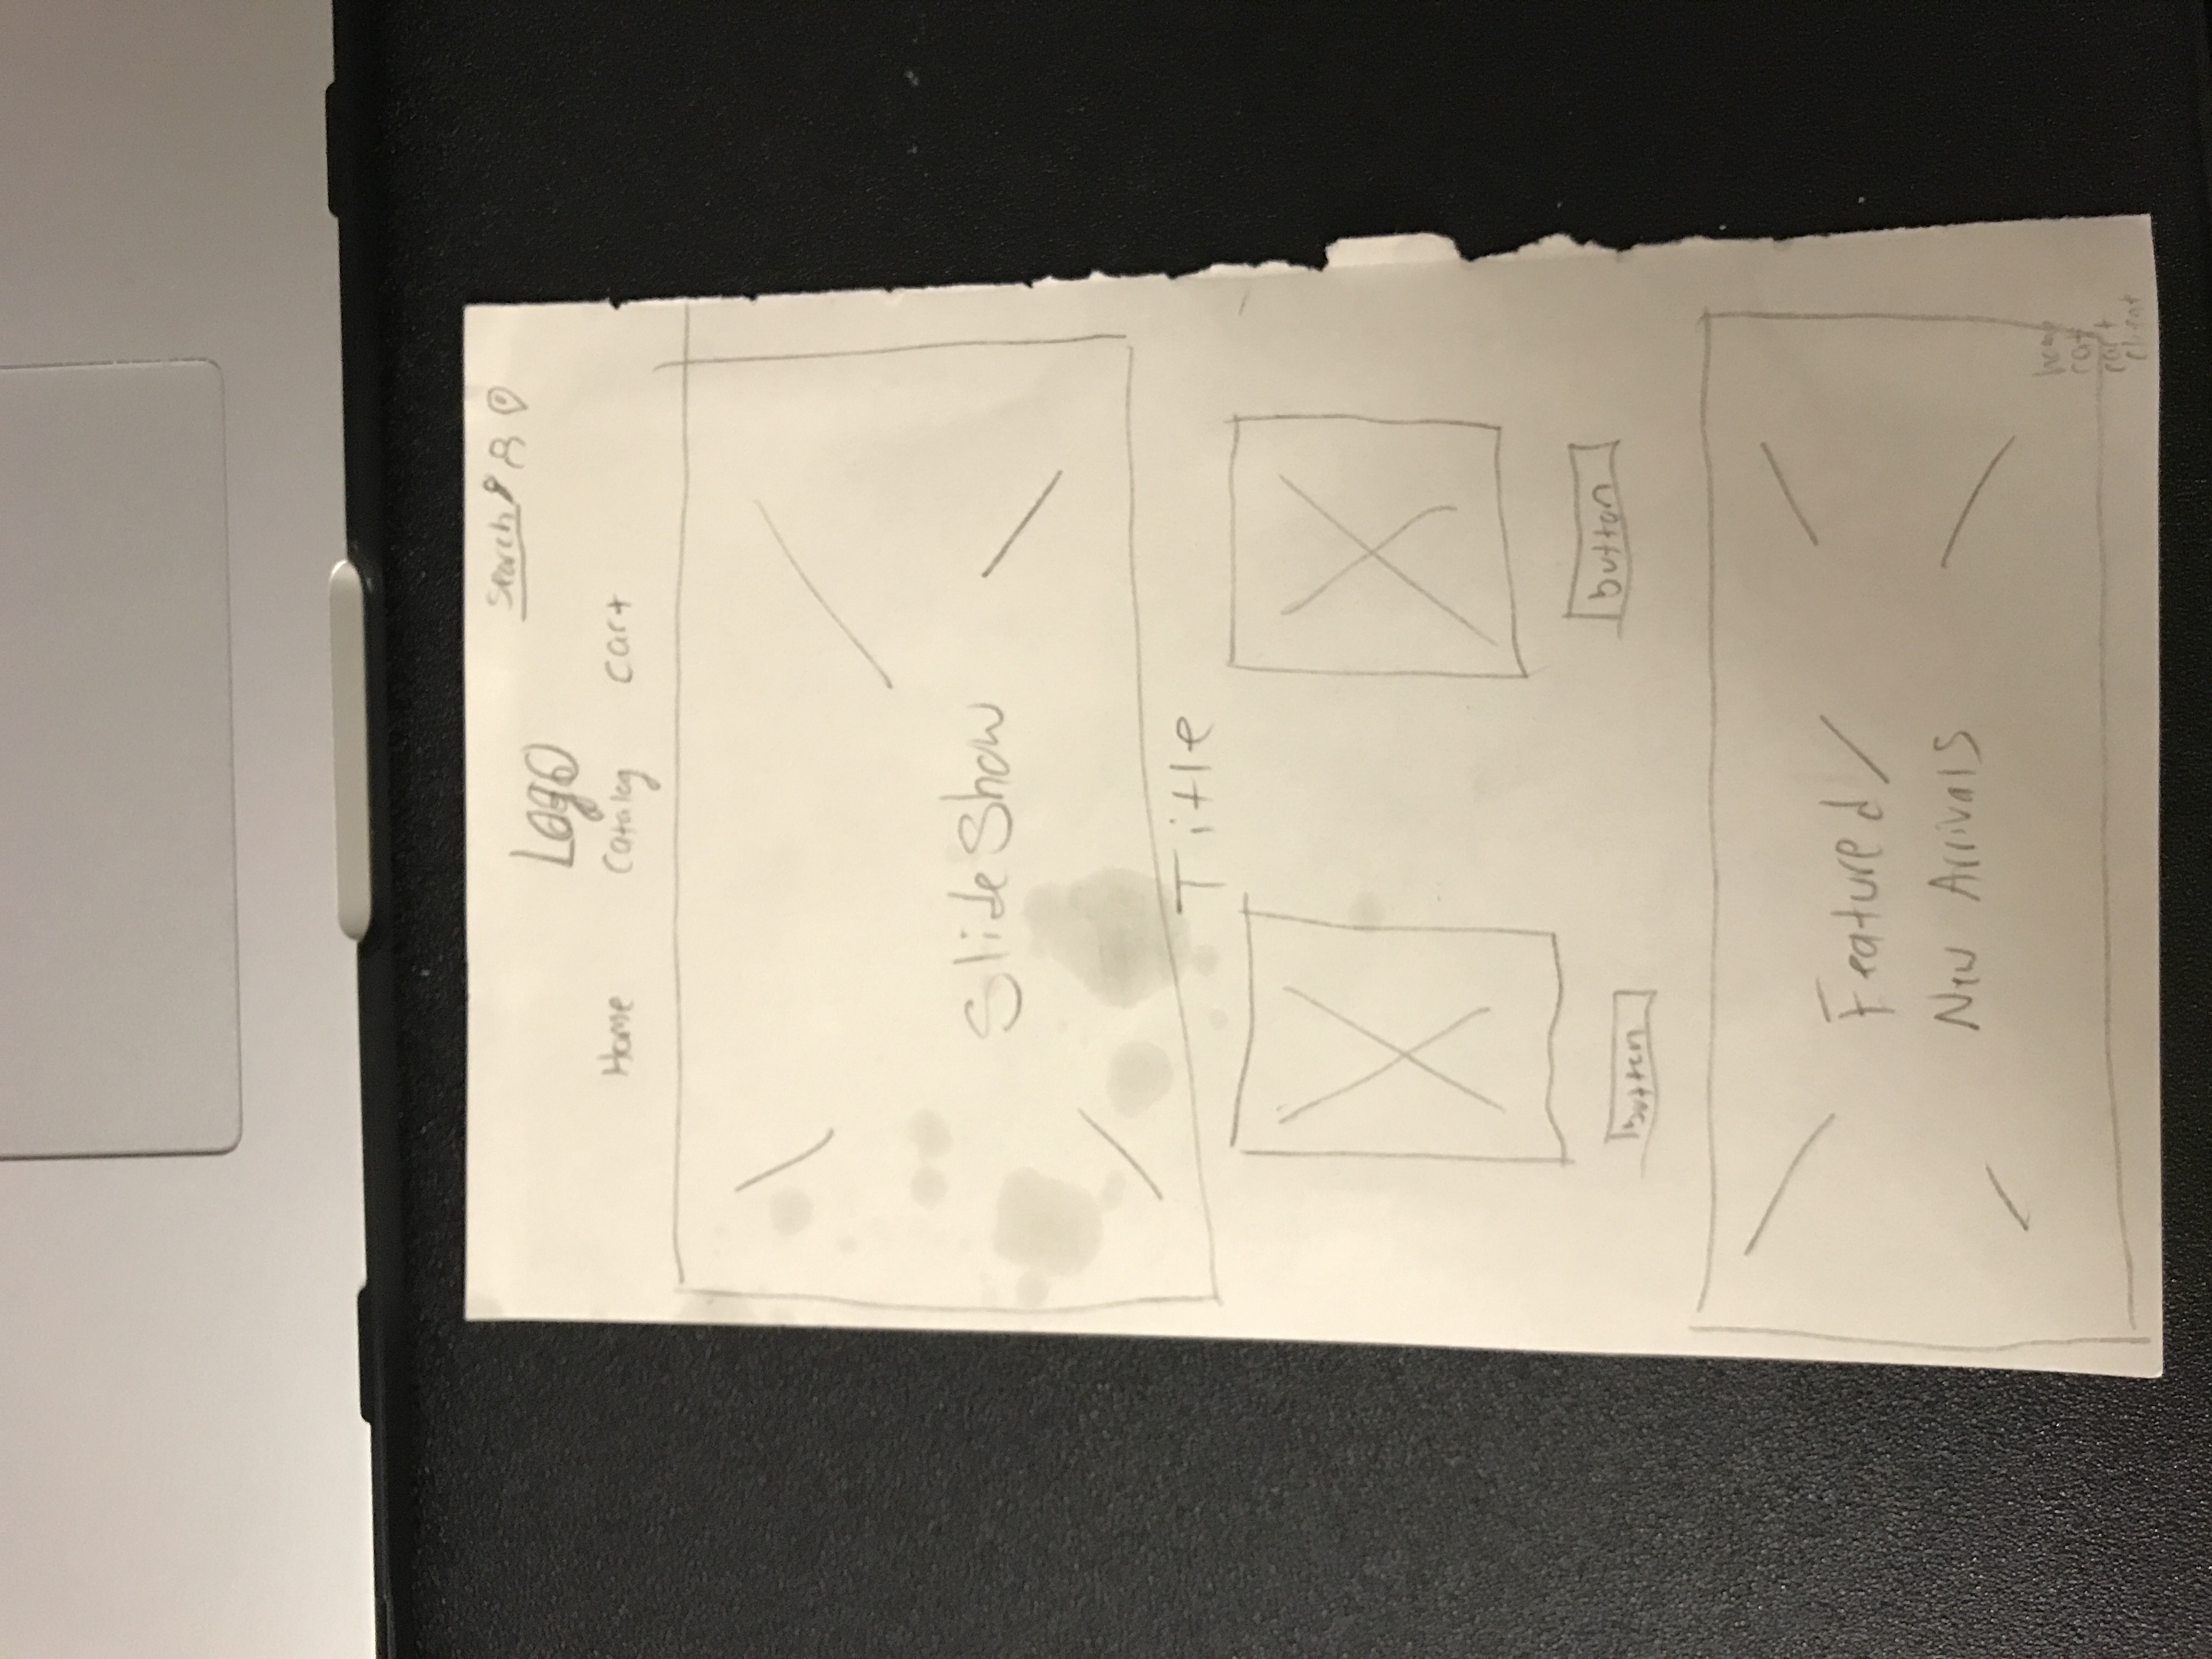 Search
Logo
Home Catalog Cart
Slide Show
Title
button button
Featured/
New Arrivals
home
cat
cart
client